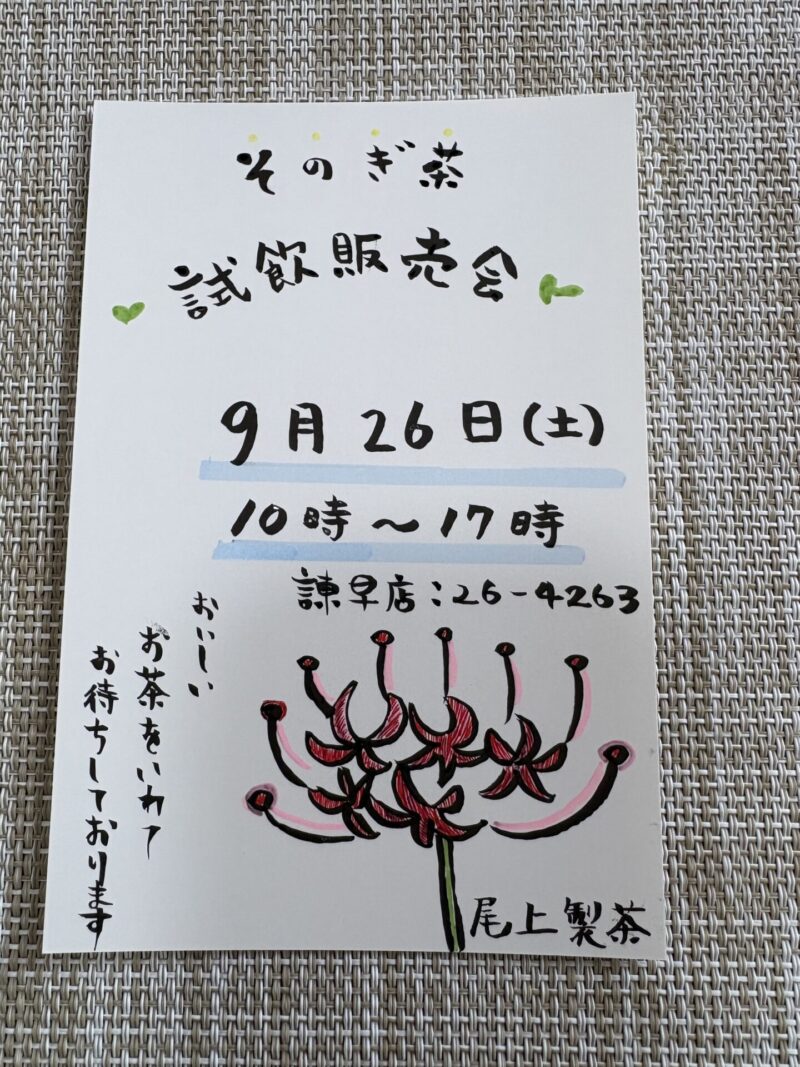 そのぎ茶
試飲販売会
9月26日(土)
10時〜17時
諫早店:26-4263
おいしい
お茶をいれて
お待ちしております
尾上製茶